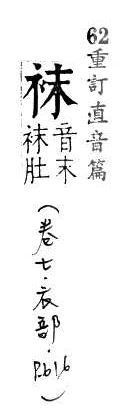 62重訂直音篇
袜
音末
袜肚
(卷七·衣部·P.616)